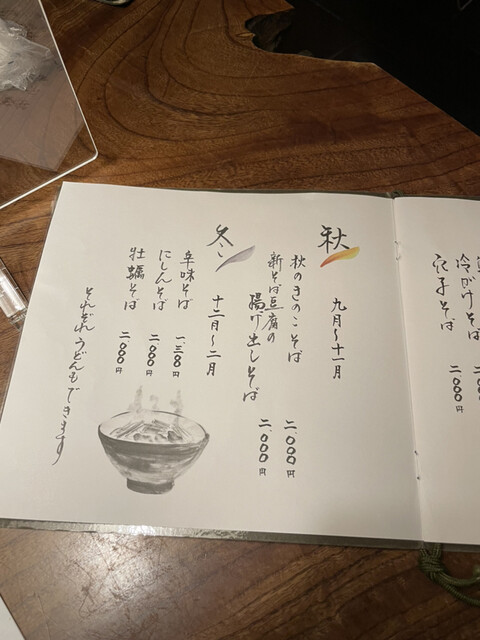 冷がけそば
二、〇〇〇
秋
九月〜十一月
秋のきのこそば
二、〇〇〇円
新そば豆腐の
揚げ出しそば
二、〇〇〇円
冬
十二月〜二月
辛味そば
一、三〇〇円
にしんそば
二、〇〇〇円
牡蠣そば
二、〇〇〇円
それぞれうどんもできます